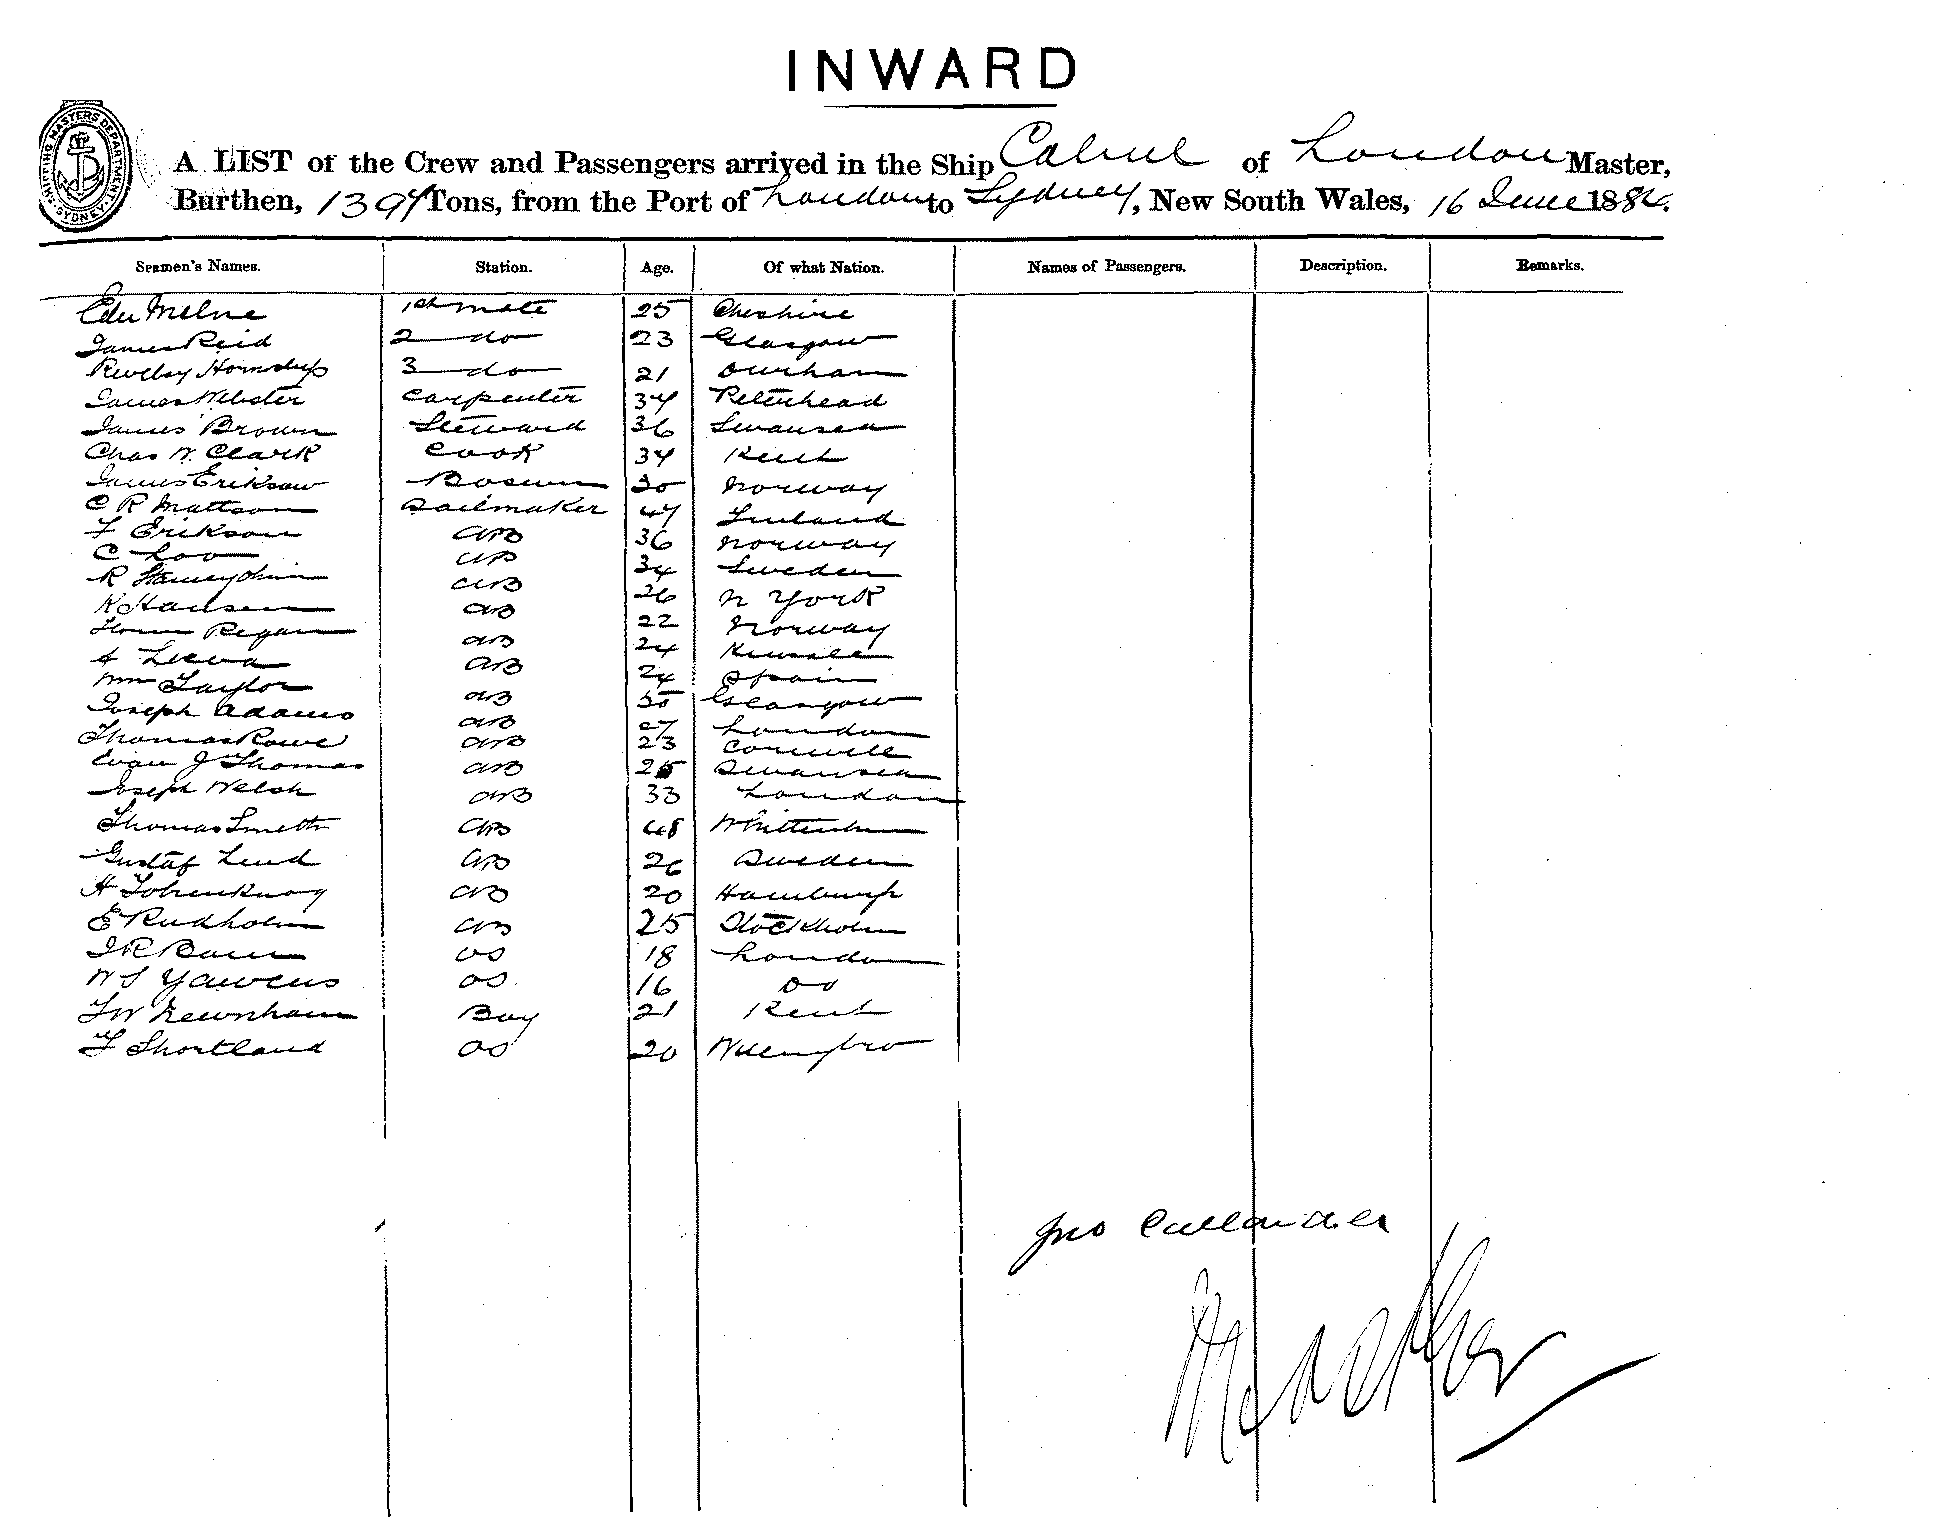 INWARD
SHIPPING MASTERS DEPARTMENT SYDNEY
A LIST of the Crew and Passengers arrived in the Ship Cabul of London Master,
Burthen, 1394 Tons, from the Port of London to Sydney, New South Wales, 16 June 188
Seamen's Names. Station. Age. Of what Nation. Names of Passengers. Description. Remarks.
Edw Milne 1st mate 25 Cheshire
James Reid 2 do 23 Glasgow
3 do 21 Durham
James Webster Carpenter 34 Peterhead
James Brown Steward 36 Swansea
Chas W. Clark Cook 34 Kent
James Erikson Bosun 30 Norway
C R Mattson Sailmaker 47 Finland
F Erikson AB 36 Norway
C Loo AB 34 Sweden
R AB 26 N York
K Hansen AB 22 Norway
Regan AB 24 Kinsale
A AB 24 Spain
Wm Taylor AB 30 Glasgow
Joseph Adams AB 27 London
Thomas Rowe AB 23 Cornwall
Evan J Thomas AB 25 Swansea
Joseph Welsh AB 33 London
Thomas Smith AB 48
Gustaf Lund AB 26 Sweden
H AB 20 Hamburg
E Rudholm AB 25 Stockholm
J R OS 18 London
W S Yawens OS 16 Do
F W Newnham Boy 21 Kent
F Shortland OS 20
Jno Callander